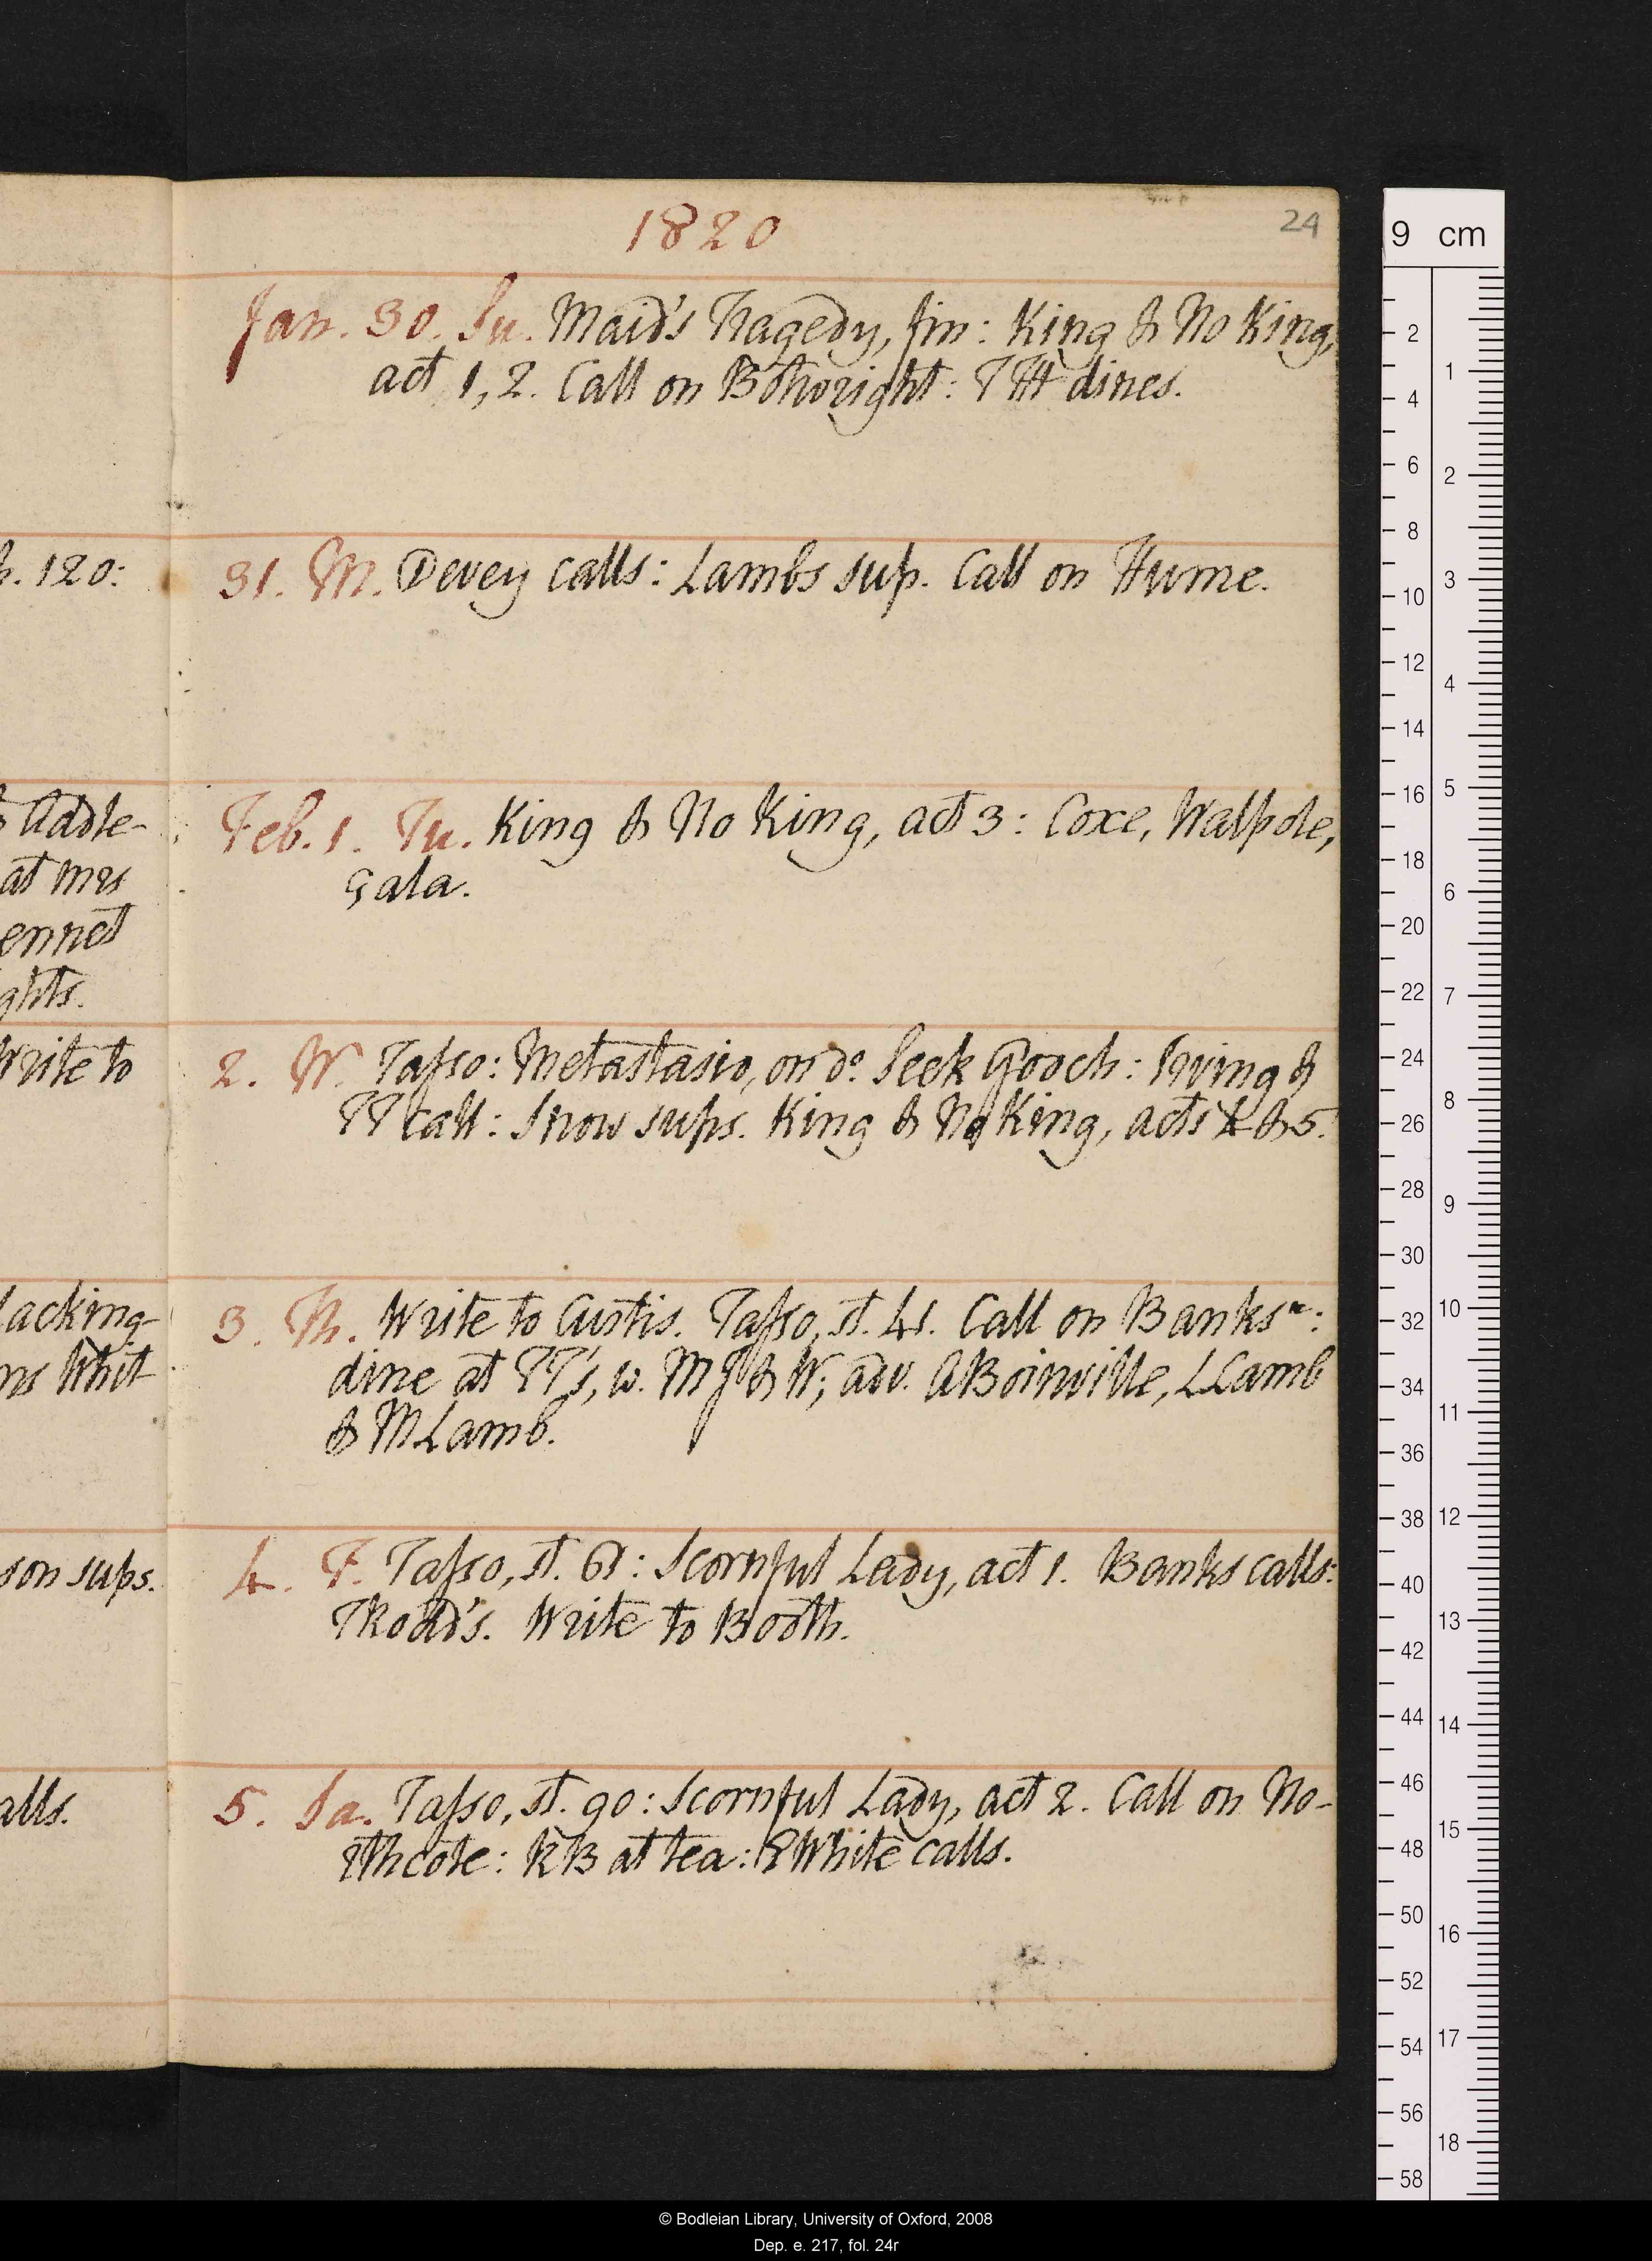 1820
24
Jan. 30. Su. Maid's Tragedy, fin: King & No King,
act 1, 2. Call on Bothwright: TTH dines.
31. M. Devey calls: Lambs sup. Call on Hume.
Feb. 1. Tu. King & No King, act 3: Coxe, Walpole,
Gala.
2. W. Tasso: Metastasio, on do. Seek Gooch: Irving &
TT call: Snow sups. King & No King, acts 4 & 5.
3. Th. Write to Curtis. Tasso, st. 41. Call on Banks
dine at TT's, w. MJ & W; adv. ABoinville, LLamb
& MLamb.
4. F. Tasso, st. 61: Scornful Lady, act 1. Banks calls:
TRodd's. Write to Booth.
5. Sa. Tasso, st. 90: Scornful Lady, act 2. Call on No-
rthcote: RB at tea: PWhite calls.
h. 120:
Addle-
at Mrs
ennet
ghts.
Write to
lacking-
ns Whit
son sups.
alls.
9 cm
2
4
6
8
10
12
14
16
18
20
22
24
26
28
30
32
34
36
38
40
42
44
46
48
50
52
54
56
58
1
2
3
4
5
6
7
8
9
10
11
12
13
14
15
16
17
18
© Bodleian Library, University of Oxford, 2008
Dep. e. 217, fol. 24r